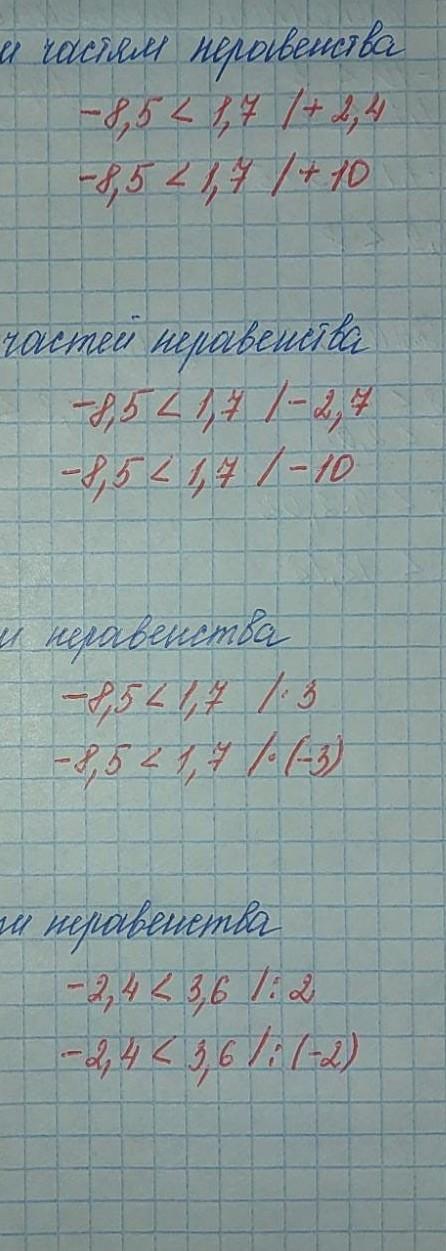 и частям неравенства
-8,5 < 1,7 / + 2,4
-8,5 < 1,7 / + 10
частей неравенства
-8,5 < 1,7 / - 2,7
-8,5 < 1,7 / - 10
и неравенства
-8,5 < 1,7 / · 3
-8,5 < 1,7 / · (-3)
ти неравенства
-2,4 < 3,6 / : 2
-2,4 < 3,6 / : (-2)